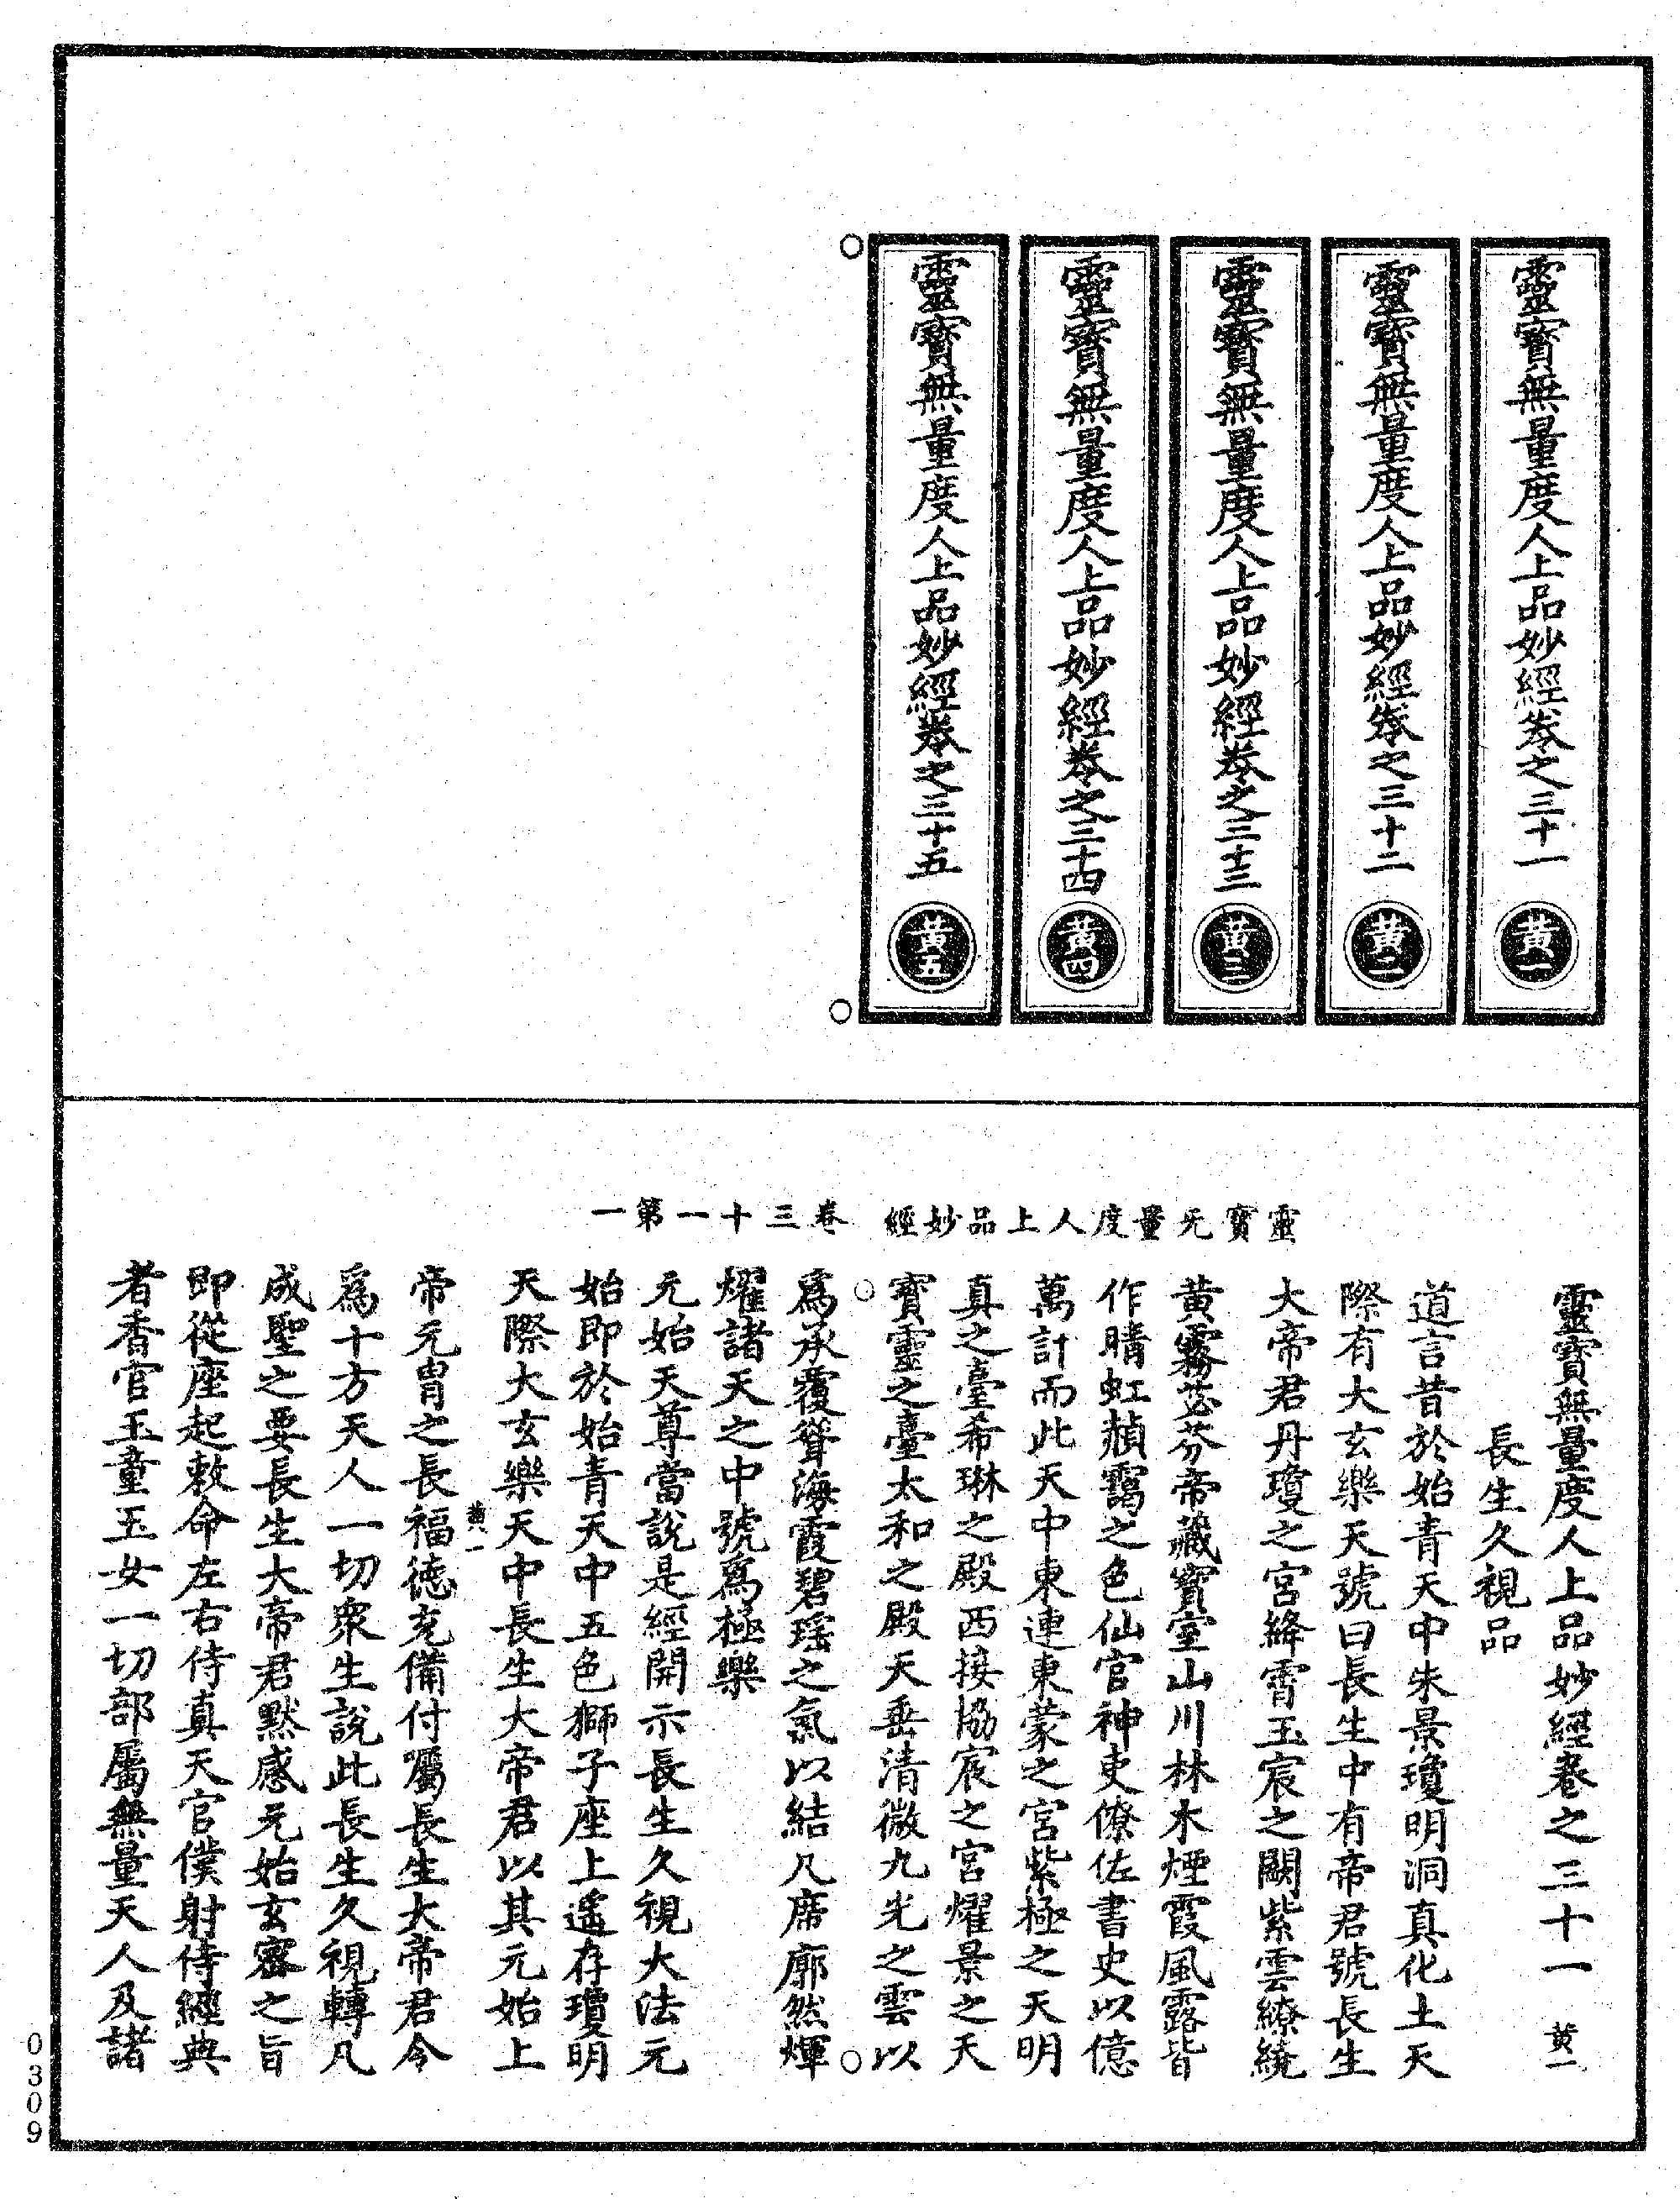 靈寶無量度人上品妙經卷之三十一 黃一
靈寶無量度人上品妙經卷之三十二 黃二
靈寶無量度人上品妙經卷之三十三 黃三
靈寶無量度人上品妙經卷之三十四 黃四
靈寶無量度人上品妙經卷之三十五 黃五
靈寶无量度人上品妙經 卷三十一第一
靈寶無量度人上品妙經卷之三十一 黃一
長生久視品
道言昔於始青天中朱景瓊明洞真化土天
際有大玄樂天號曰長生中有帝君號長生
大帝君丹瓊之宮絳霄玉宸之闕紫雲繚繞
黃霧苾芬帝藏寶室山川林木煙霞風露皆
作晴虹頳靄之色仙官神吏僚佐書史以億
萬計而此天中東連東蒙之宮紫極之天明
真之臺希琳之殿西接協宸之宮耀景之天
寶靈之臺太和之殿天垂清微九光之雲以
爲承覆聳海霞碧瑶之氣以結凡席廓然煇
耀諸天之中號爲極樂
元始天尊當說是經開示長生久視大法元
始即於始青天中五色獅子座上遙存瓊明
天際大玄樂天中長生大帝君以其元始上
黃八一
帝元胄之長福德充備付囑長生大帝君令
爲十方天人一切衆生說此長生久視轉凡
成聖之要長生大帝君默感元始玄密之旨
即從座起敕命左右侍真天官僕射侍經典
者香官玉童玉女一切部屬無量天人及諸
0309